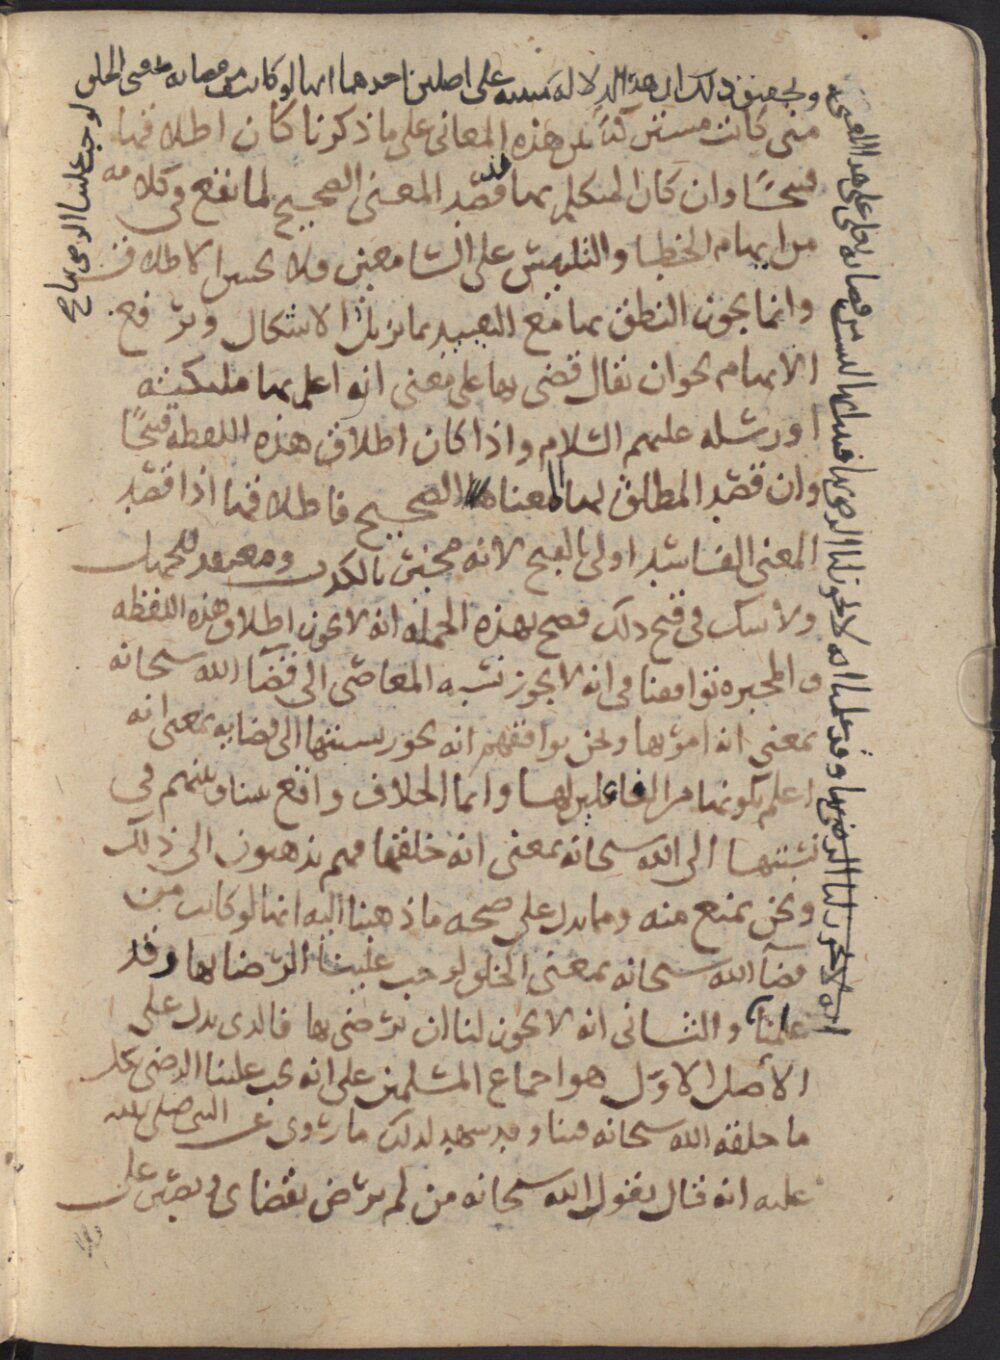 وتحقيق ذلك ان هذه الدلالة مبنية على اصلين احدهما انها لو كانت من قضائه بمعنى الخلق
لوجب علينا الرضى بها
متى كانت مشتركة بين هذه المعاني على ما ذكرنا كان اطلاقها
قبيحًا وان كان المتكلم بها قد قصد المعنى الصحيح لما يقع في كلامه
من ايهام الخطا والتلبيس على السامعين فلا يحسن الاطلاق
وانما يجوز النطق بها مع التقييد بما يزيل الاشكال ويرفع
الايهام نحو ان يقال قضى بها على معنى انه اعلم بها ملائكته
او رسله عليهم السلام واذا كان اطلاق هذه اللفظة قبيحًا
وان قصد المطلق لها المعنا الصحيح فاطلاقها اذا قصد
المعنى الفاسد اولى بالقبح لانه مخبر بالكذب ومعتقد للجهل
ولا شك في قبح ذلك فصح بهذه الجملة انه لا يجوز اطلاق هذه اللفظه
والمجبره توافقنا في انه لا يجوز نسبه المعاصى الى قضا الله سبحانه
بمعنى انه امر بها ونحن نوافقهم انه يجوز نسبتها الى قضايه بمعنى انه
اعلم بكونها من الفاعلين لها وانما الخلاف واقع بيننا وبينهم في
نسبتها الى الله سبحانه بمعنى انه خلقها فهم يذهبون الى ذلك
ونحن نمنع منه ومما يدل على صحه ما ذهبنا اليه انها لو كانت من
قضآ الله سبحانه بمعنى الخلق لوجب علينا الرضا بها وقد
علمنا والثاني انه لا يجوز لنا ان نرضى بها فالذى يدل على
الاصل الاول هو اجماع المسلمين على انه يجب علينا الرضى بكل
ما خلقه الله سبحانه فينا وقد شهد لذلك ما روى عن النبى صلى الله
عليه انه قال يقول الله سبحانه من لم يرض بقضاى ويصبر على
انه لا يجوز لنا الرضى بها وقد علمنا انه لا يجوز لنا الرضى بها فثبت انها ليست من قضائه تعالى على هذا المعنى